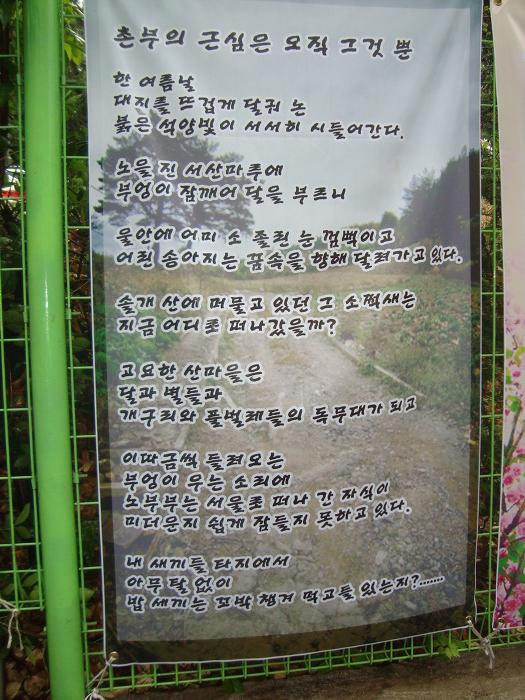 촌부의 근심은 오직 그것 뿐
한 여름날
대지를 뜨겁게 달궈 논
붉은 석양빛이 서서히 시들어간다.
노을 진 서산마루에
부엉이 잠깨어 달을 부르니
울안에 어미 소 졸린 눈 껌뻑이고
어린 송아지는 꿈속을 향해 달려가고 있다.
솔개 산에 머물고 있던 그 소쩍새는
지금 어디로 떠나갔을까?
고요한 산마을은
달과 별들과
개구리와 풀벌레들의 독무대가 되고
이따금씩 들려오는
부엉이 우는 소리에
노부부는 서울로 떠나 간 자식이
미더운지 쉽게 잠들지 못하고 있다.
내 새끼들 타지에서
아무 탈 없이
밥 세끼는 꼬박 챙겨 먹고들 있는지?.......